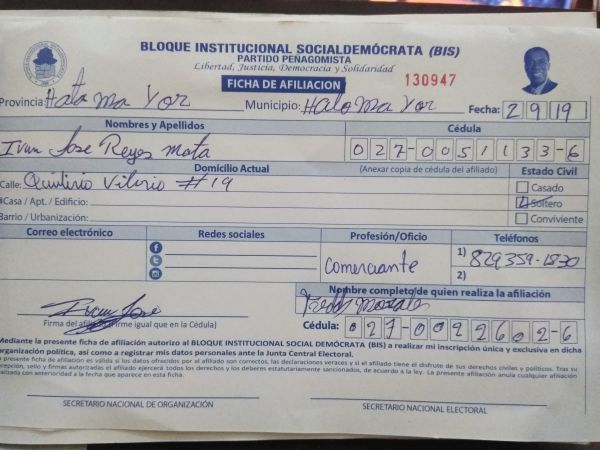 BLOQUE INSTITUCIONAL SOCIALDEMÓCRATA (BIS)
PARTIDO PEÑAGOMISTA
Libertad, Justicia, Democracia y Solidaridad
FICHA DE AFILIACION
130947
Provincia: Hata Ma Yor Municipio: Hato Ma Yor Fecha: 2 9 19
Nombres y Apellidos Cédula
Ivan Jose Reyes Mota 027-0051133-6
Domicilio Actual (Anexar copia de cédula del afiliado) Estado Civil
Calle: Quintirio Vilorio #19 Casado
#Casa / Apt. / Edificio: Soltero
Barrio / Urbanización: Conviviente
Correo electrónico Redes sociales Profesión/Oficio Teléfonos
Comerciante
1) 829359-1830
2)
Nombre completo/de quien realiza la afiliación
Ivan José
Firma del afiliado (Firme igual que en la Cédula)
Cédula: 027-0092602-6
Mediante la presente ficha de afiliación autorizo al BLOQUE INSTITUCIONAL SOCIAL DEMÓCRATA (BIS) a realizar mi inscripción única y exclusiva en dicha
organización política, así como a registrar mis datos personales ante la Junta Central Electoral.
a presente ficha de afiliación es válida si los datos ofrecidos por el afiliado son correctos, las declaraciones veraces y si el afiliado tiene el disfrute de sus derechos civiles y políticos. Tras su
recepción, sello y firmas autorizadas el afiliado ejercerá todos los derechos y los deberes estatutariamente sancionados, de acuerdo a la ley. La presente afiliación anula cualquier afiliación
realizada con anterioridad a la fecha que aparece en esta ficha.
SECRETARIO NACIONAL DE ORGANIZACIÓN SECRETARIO NACIONAL ELECTORAL